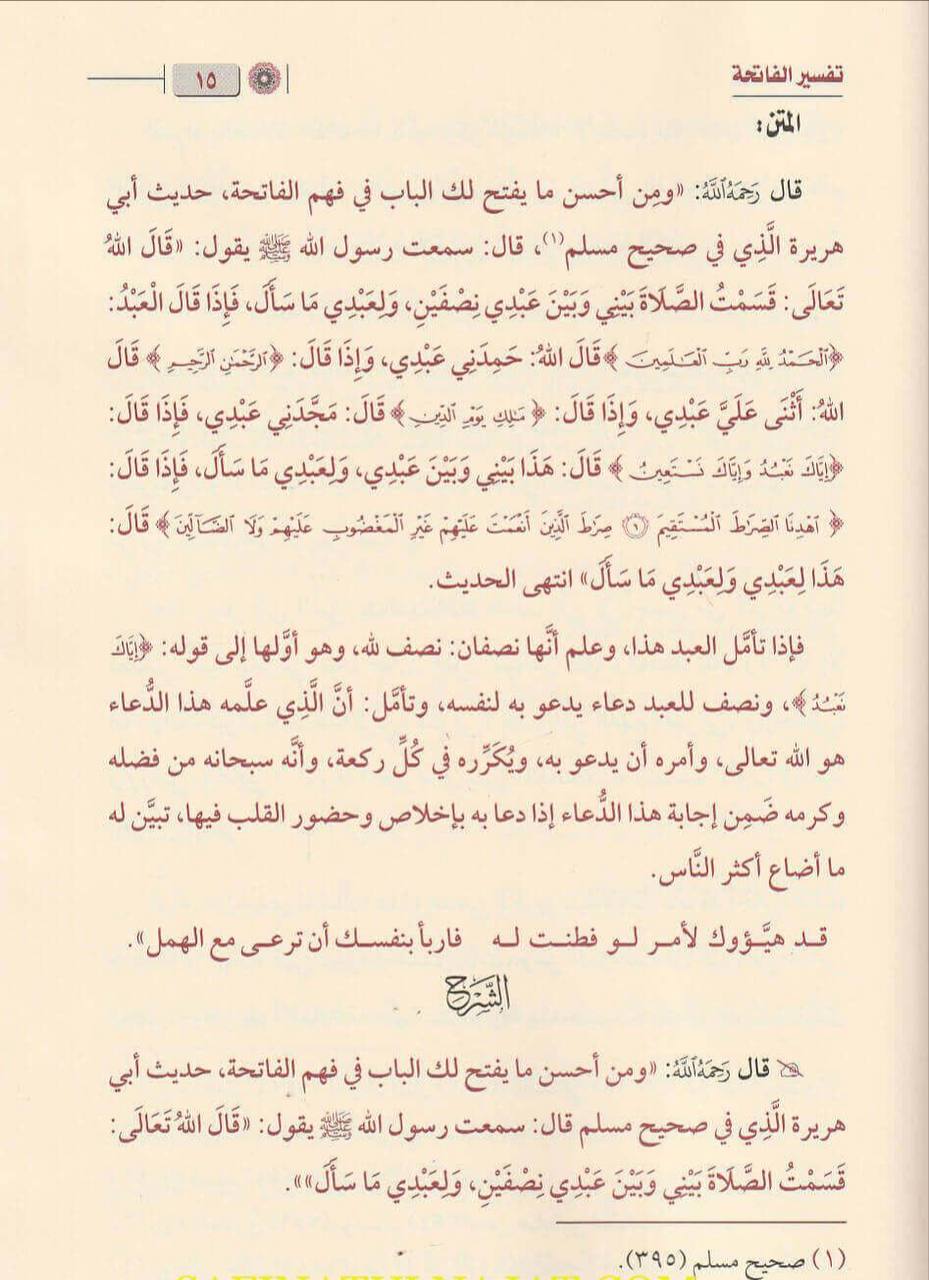 تفسير الفاتحة
١٥
المتن:
قال رَحِمَهُ اللَّهُ: «ومِن أحسن ما يفتح لك الباب في فهم الفاتحة، حديث أبي
هريرة الَّذِي في صحيح مسلم(١)، قال: سمعت رسول الله ﷺ يقول: «قَالَ اللهُ
تَعَالَى: قَسَمْتُ الصَّلَاةَ بَيْنِي وَبَيْنَ عَبْدِي نِصْفَيْنِ، وَلِعَبْدِي مَا سَأَلَ، فَإِذَا قَالَ الْعَبْدُ:
﴿اَلْحَمْدُ لِلَّهِ رَبِّ الْعَالَمِينَ﴾ قَالَ اللهُ: حَمِدَنِي عَبْدِي، وَإِذَا قَالَ: ﴿الرَّحْمَٰنِ الرَّحِيمِ﴾ قَالَ
اللهُ: أَثْنَى عَلَيَّ عَبْدِي، وَإِذَا قَالَ: ﴿مَالِكِ يَوْمِ الدِّينِ﴾ قَالَ: مَجَّدَنِي عَبْدِي، فَإِذَا قَالَ:
﴿إِيَّاكَ نَعْبُدُ وَإِيَّاكَ نَسْتَعِينُ﴾ قَالَ: هَذَا بَيْنِي وَبَيْنَ عَبْدِي، وَلِعَبْدِي مَا سَأَلَ، فَإِذَا قَالَ:
﴿اهْدِنَا الصِّرَاطَ الْمُسْتَقِيمَ ۝٦ صِرَاطَ الَّذِينَ أَنْعَمْتَ عَلَيْهِمْ غَيْرِ الْمَغْضُوبِ عَلَيْهِمْ وَلَا الضَّالِّينَ﴾ قَالَ:
هَذَا لِعَبْدِي وَلِعَبْدِي مَا سَأَلَ» انتهى الحديث.
فإذا تأمَّل العبد هذا، وعلم أنَّها نصفان: نصف لله، وهو أوَّلها إلى قوله: ﴿إِيَّاكَ
نَعْبُدُ﴾، ونصف للعبد دعاء يدعو به لنفسه، وتأمَّل: أنَّ الَّذي علَّمه هذا الدُّعاء
هو الله تعالى، وأمره أن يدعو به، ويُكَرِّره في كُلِّ ركعة، وأنَّه سبحانه من فضله
وكرمه ضَمِن إجابة هذا الدُّعاء إذا دعا به بإخلاص وحضور القلب فيها، تبيَّن له
ما أضاع أكثر النَّاس.
قد هيَّؤوك لأمر لو فطنت له   فاربأ بنفسك أن ترعى مع الهمل».
الشَّرْحُ
قال رَحِمَهُ اللَّهُ: «ومن أحسن ما يفتح لك الباب في فهم الفاتحة، حديث أبي
هريرة الَّذِي في صحيح مسلم قال: سمعت رسول الله ﷺ يقول: «قَالَ اللهُ تَعَالَى:
قَسَمْتُ الصَّلَاةَ بَيْنِي وَبَيْنَ عَبْدِي نِصْفَيْنِ، وَلِعَبْدِي مَا سَأَلَ»».
(١) صحيح مسلم (٣٩٥).